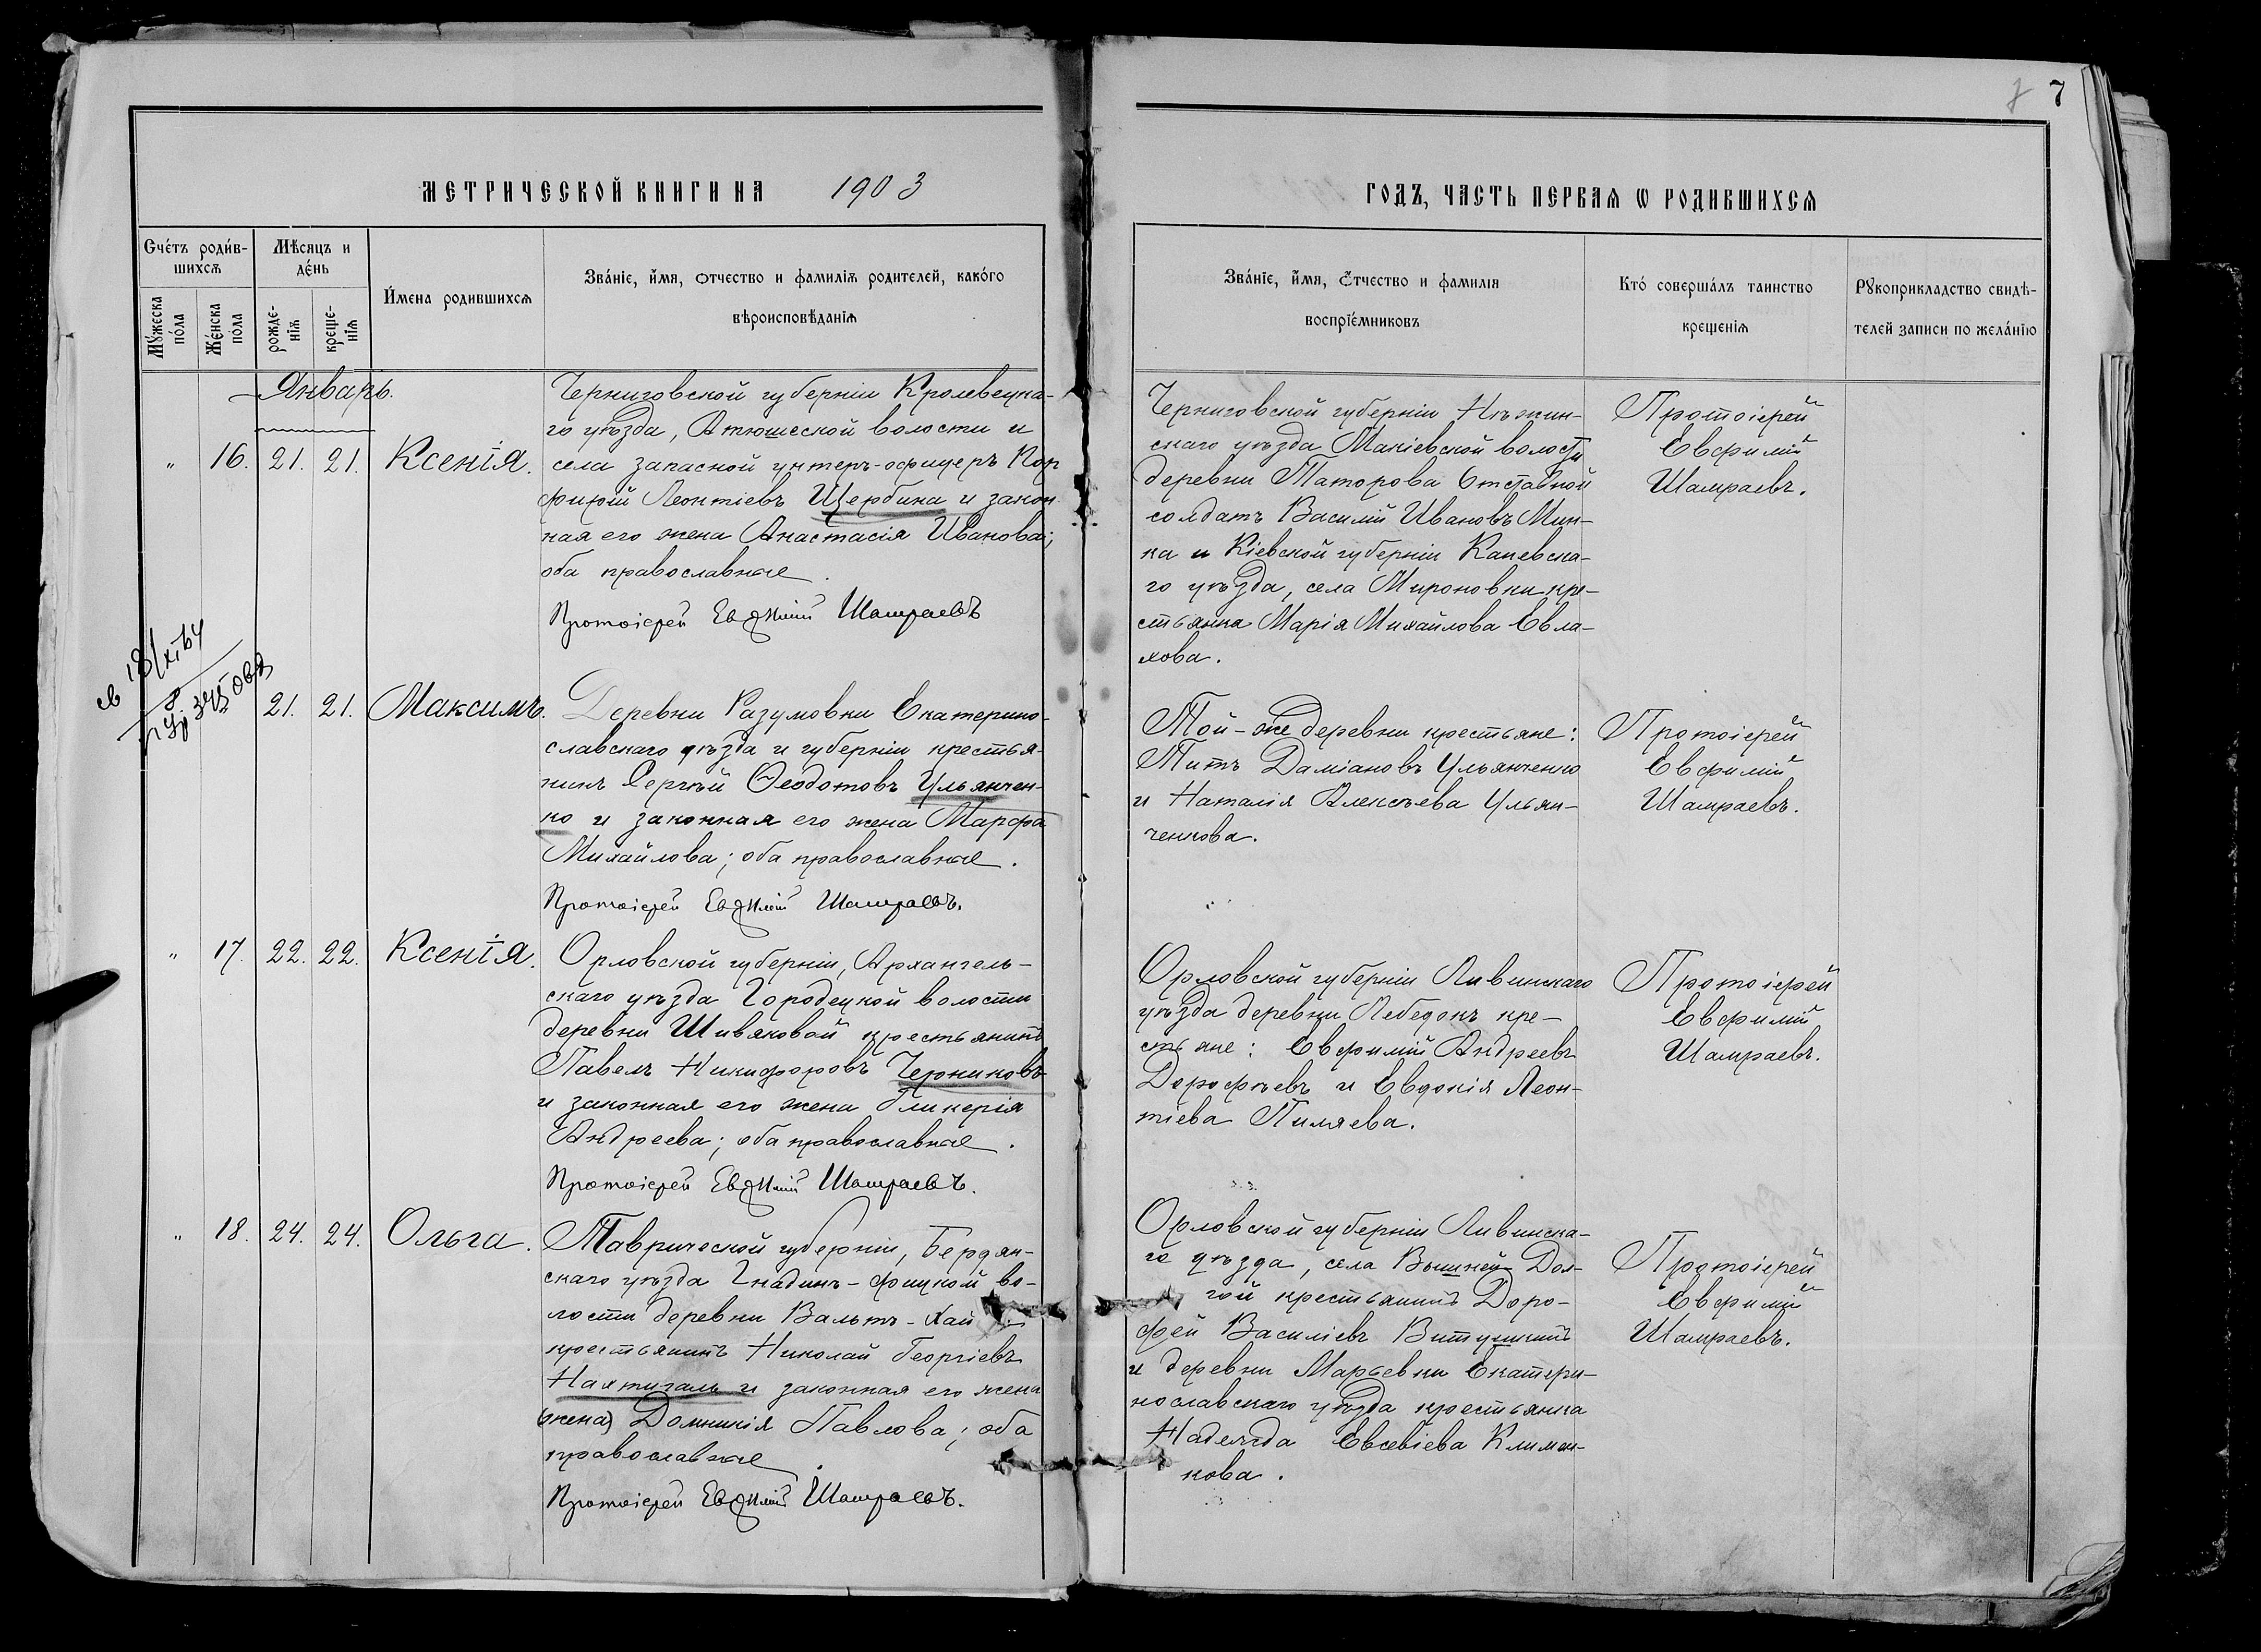 7
МЕТРИЧЕСКОЙ КНИГИ НА 1903
ГОДЪ, ЧАСТЬ ПЕРВАЯ Ѡ РОДИВШИХСЯ
Счéтъ роди́в-
шихсѧ
Мѣ́сяцъ и
де́нь
Мꙋ́жеска
по́ла
Же́нска
по́ла
рожде-
нїѧ
креще-
нїѧ
И́мена родившихсѧ
Зва́нїе, и́мя, отчество и фамилїѧ родителей, како́го
вѣроисповѣ́данїѧ
Зва́нїе, и́мя, ѻ́тчество и фамилїя
воспрїе́мниковъ
Кто́ соверша́лъ таинство
крещенїѧ
Рꙋкоприкладство свидѣ-
телей записи по жела́нїю
Январь.
" 16. 21. 21. Ксенія.
Черниговской губерніи Кролевецка-
го уѣзда, Атюшеской волости и
села запасной унтеръ-офицеръ Пор
фирій Леонтіевъ Щербина и закон
ная его жена Анастасія Иванова;
оба православные.
Протоіерей Евѳимій Шамраевъ
Черниговской губерніи Нѣжин-
скаго уѣзда Макіевской волости
деревни Таторова Отставной
солдатъ Василій Ивановъ Мин-
ка и Кіевской губерніи Каневска-
го уѣзда, села Мироновки кре-
стьянка Марія Михайлова Евла-
хова.
Протоіерей
Евфимій
Шамраевъ.
21. 21. Максимъ.
Деревни Разумовки Екатерино-
славскаго уѣзда и губерніи крестья-
нинъ Сергѣй Ѳеодотовъ Ульянчен-
ко и законная его жена Марфа
Михайлова; оба православные.
Протоіерей Евѳимій Шамраевъ.
Той-же деревни крестьяне:
Титъ Даміановъ Ульянченко
и Наталія Алексѣева Ульян-
ченкова.
Протоіерей
Евфимій
Шамраевъ.
" 17. 22. 22. Ксенія.
Орловской губерніи, Архангель-
скаго уѣзда Городецкой волости
деревни Шивяковой крестьянинъ
Павелъ Никифоровъ Черниковъ
и законная его жена Гликерія
Андреева; оба православные.
Протоіерей Евѳимій Шамраевъ.
Орловской губерніи Ливинскаго
уѣзда деревни Лебедокъ кре-
стьяне: Евфимій Андреевъ
Дорофѣевъ и Евдокія Леон-
тіева Пиляева.
Протоіерей
Евфимій
Шамраевъ.
" 18. 24. 24. Ольга.
Таврической губерніи, Бердян-
скаго уѣзда Гнадинъ-фицкой во-
лости деревни Вальтъ-Хай
крестьянинъ Николай Георгіевъ
Нахтигаль и законная его жена
(жена) Домникія Павлова; оба
православные.
Протоіерей Евѳимій Шамраевъ.
Орловской губерніи Ливинска-
го уѣзда, села Вышней Дол-
гой крестьянинъ Доро-
фей Василіевъ
и деревни Марьевки Екатери-
нославскаго уѣзда крестьянка
Надежда Евсевіева Климен-
кова.
Протоіерей
Евфимій
Шамраевъ.